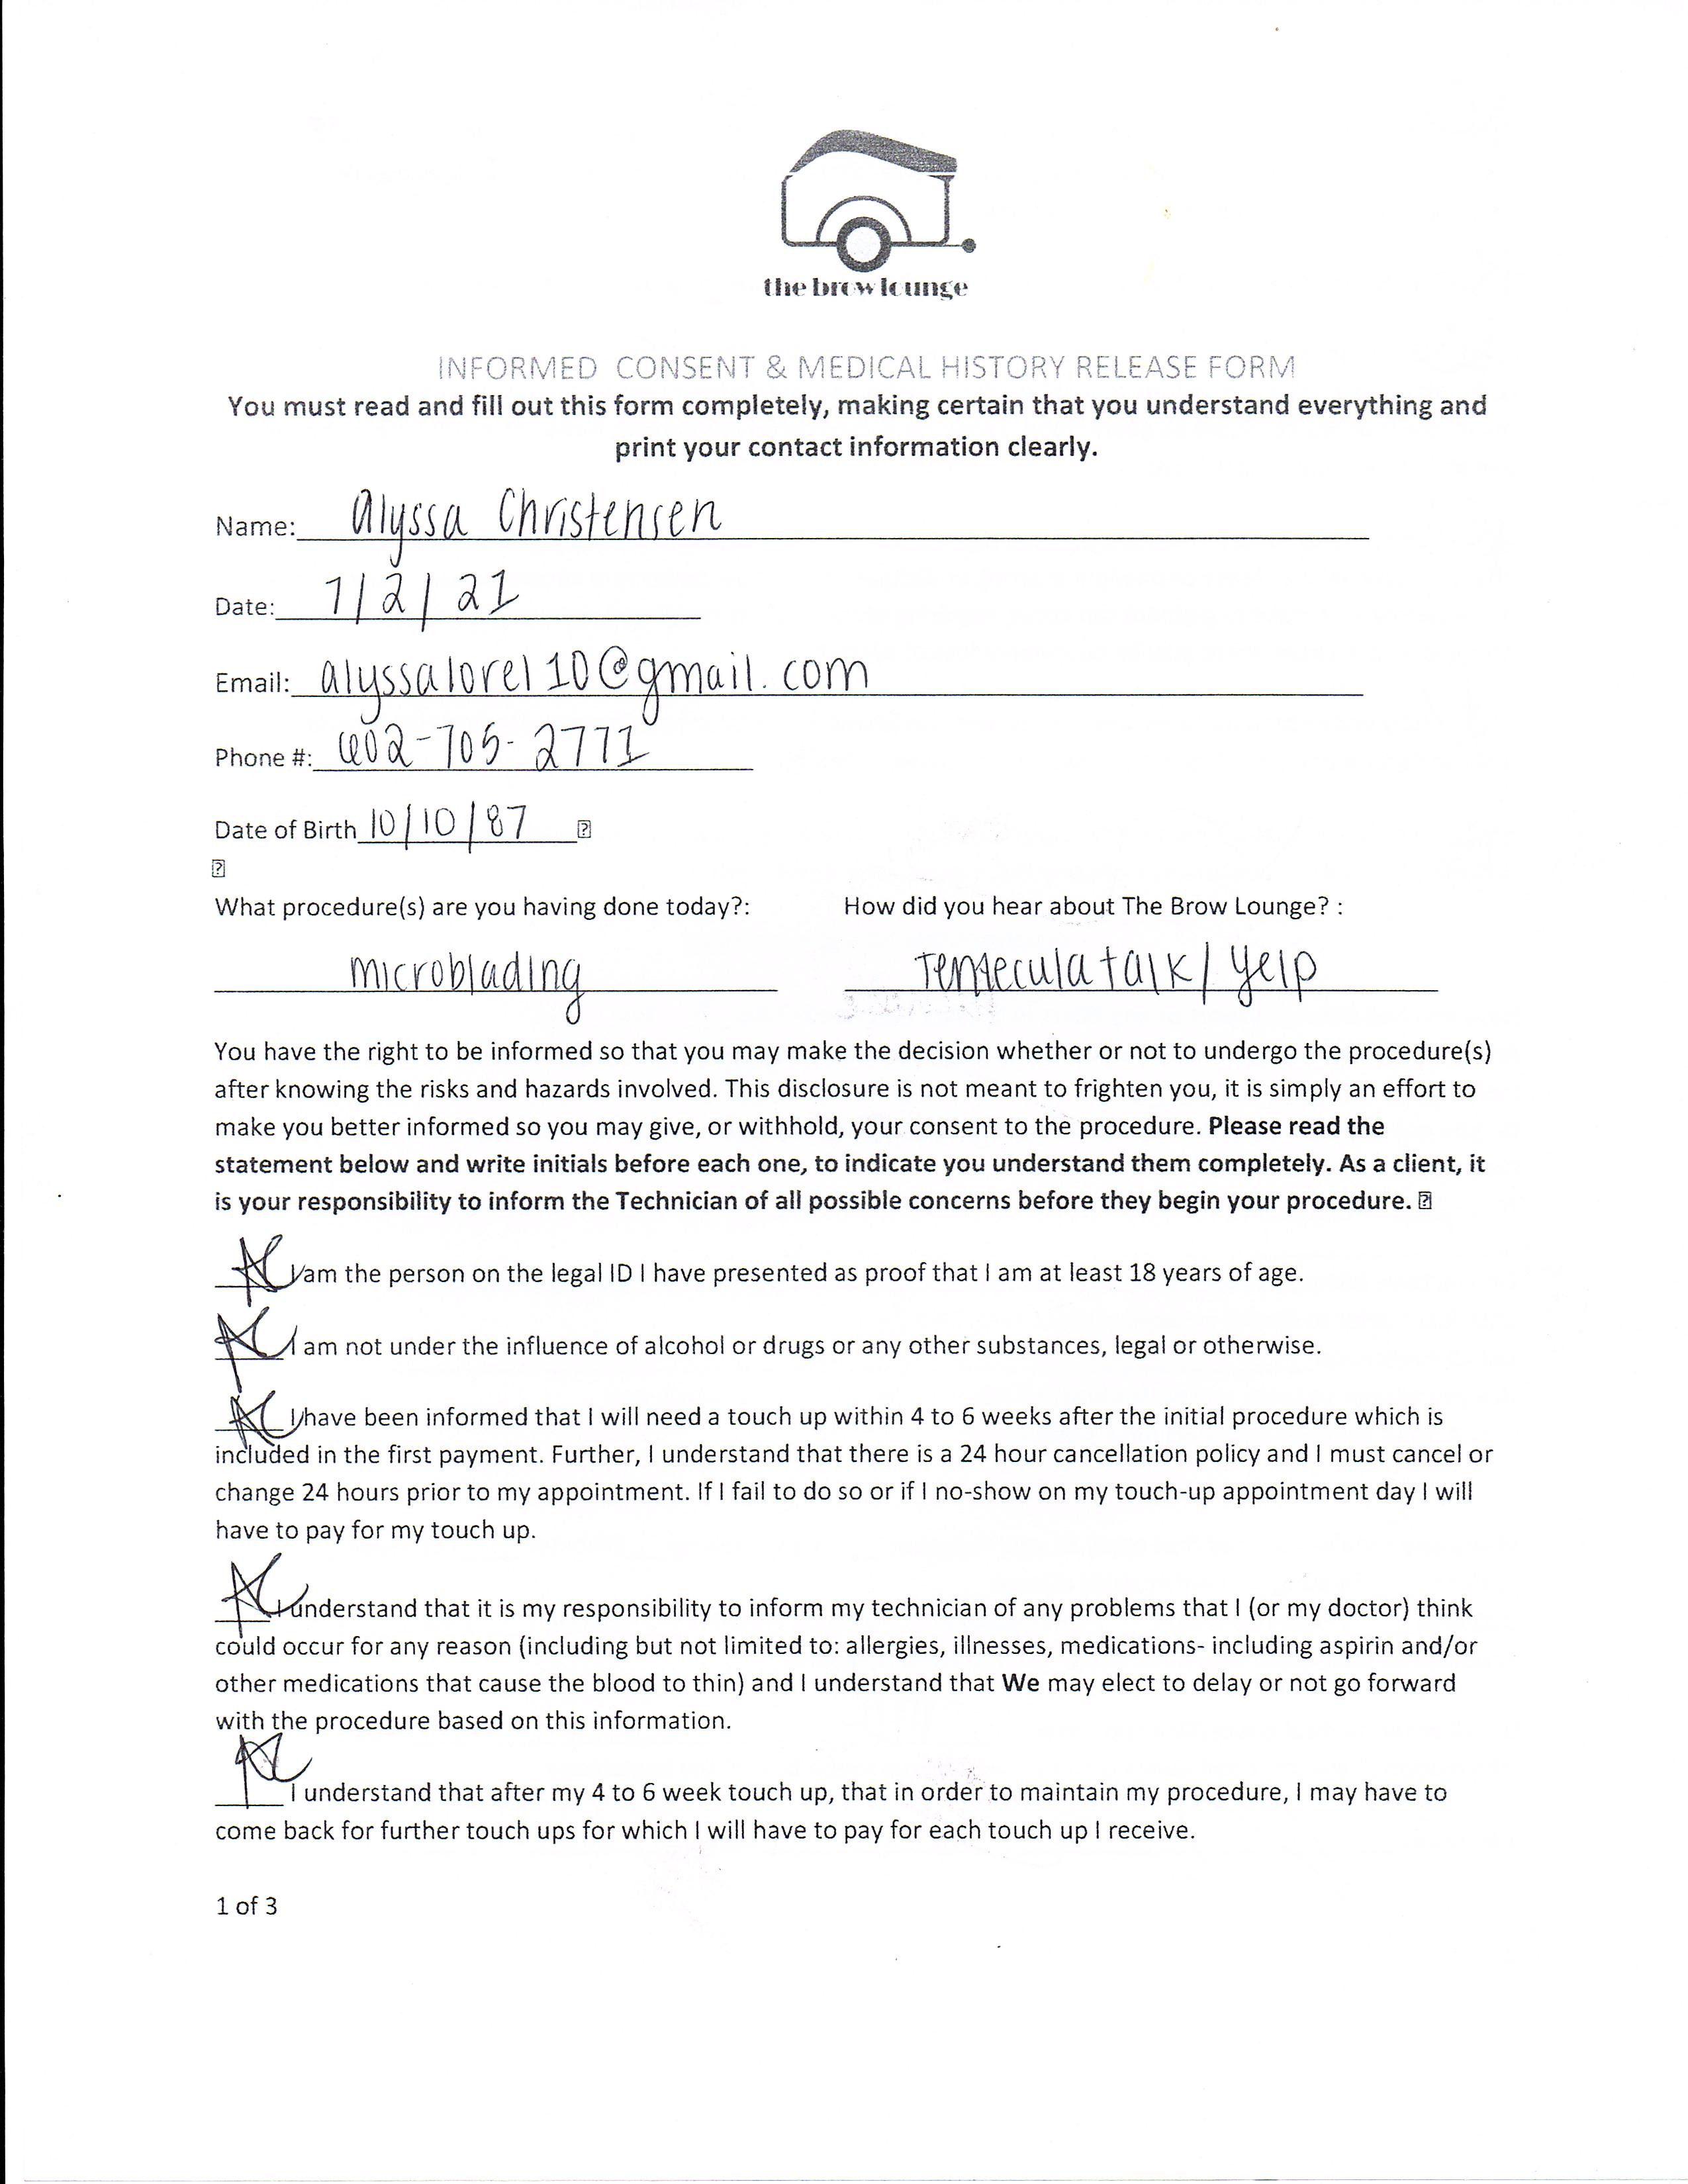 the brow lounge
INFORMED CONSENT & MEDICAL HISTORY RELEASE FORM
You must read and fill out this form completely, making certain that you understand everything and
print your contact information clearly.
Name: Alyssa Christensen
Date: 7/2/21
Email: alyssalorel10@gmail.com
Phone #: 602-705-2771
Date of Birth 10/10/87
What procedure(s) are you having done today?: How did you hear about The Brow Lounge? :
microblading Temecula talk/yelp
You have the right to be informed so that you may make the decision whether or not to undergo the procedure(s)
after knowing the risks and hazards involved. This disclosure is not meant to frighten you, it is simply an effort to
make you better informed so you may give, or withhold, your consent to the procedure. Please read the
statement below and write initials before each one, to indicate you understand them completely. As a client, it
is your responsibility to inform the Technician of all possible concerns before they begin your procedure.
AC I am the person on the legal ID I have presented as proof that I am at least 18 years of age.
AC I am not under the influence of alcohol or drugs or any other substances, legal or otherwise.
AC I have been informed that I will need a touch up within 4 to 6 weeks after the initial procedure which is
included in the first payment. Further, I understand that there is a 24 hour cancellation policy and I must cancel or
change 24 hours prior to my appointment. If I fail to do so or if I no-show on my touch-up appointment day I will
have to pay for my touch up.
AC I understand that it is my responsibility to inform my technician of any problems that I (or my doctor) think
could occur for any reason (including but not limited to: allergies, illnesses, medications- including aspirin and/or
other medications that cause the blood to thin) and I understand that We may elect to delay or not go forward
with the procedure based on this information.
AC I understand that after my 4 to 6 week touch up, that in order to maintain my procedure, I may have to
come back for further touch ups for which I will have to pay for each touch up I receive.
1 of 3